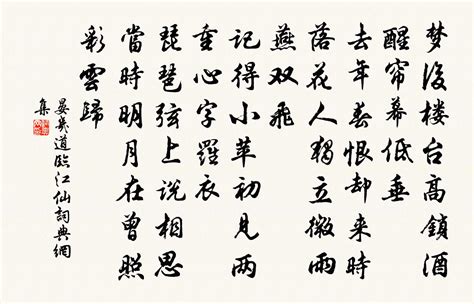 梦後楼台高鎖酒
醒帘幕低垂
去年春恨却来時
落花人獨立微雨
燕双飛
記得小苹初見两
重心字羅衣
琵琶弦上説相思
當時明月在曾照
彩雲歸
晏幾道臨江仙詞典網
集